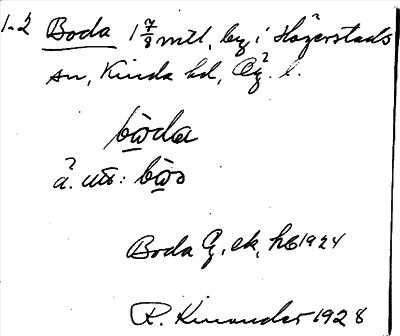 1-2 Boda 1 7/8 mtl, by i Högerstads
sn, Kinda hd, Ög. l.
bωda
ä. utt: bωɔ
Boda G. ek. kb 1924
R. Kinander 1928